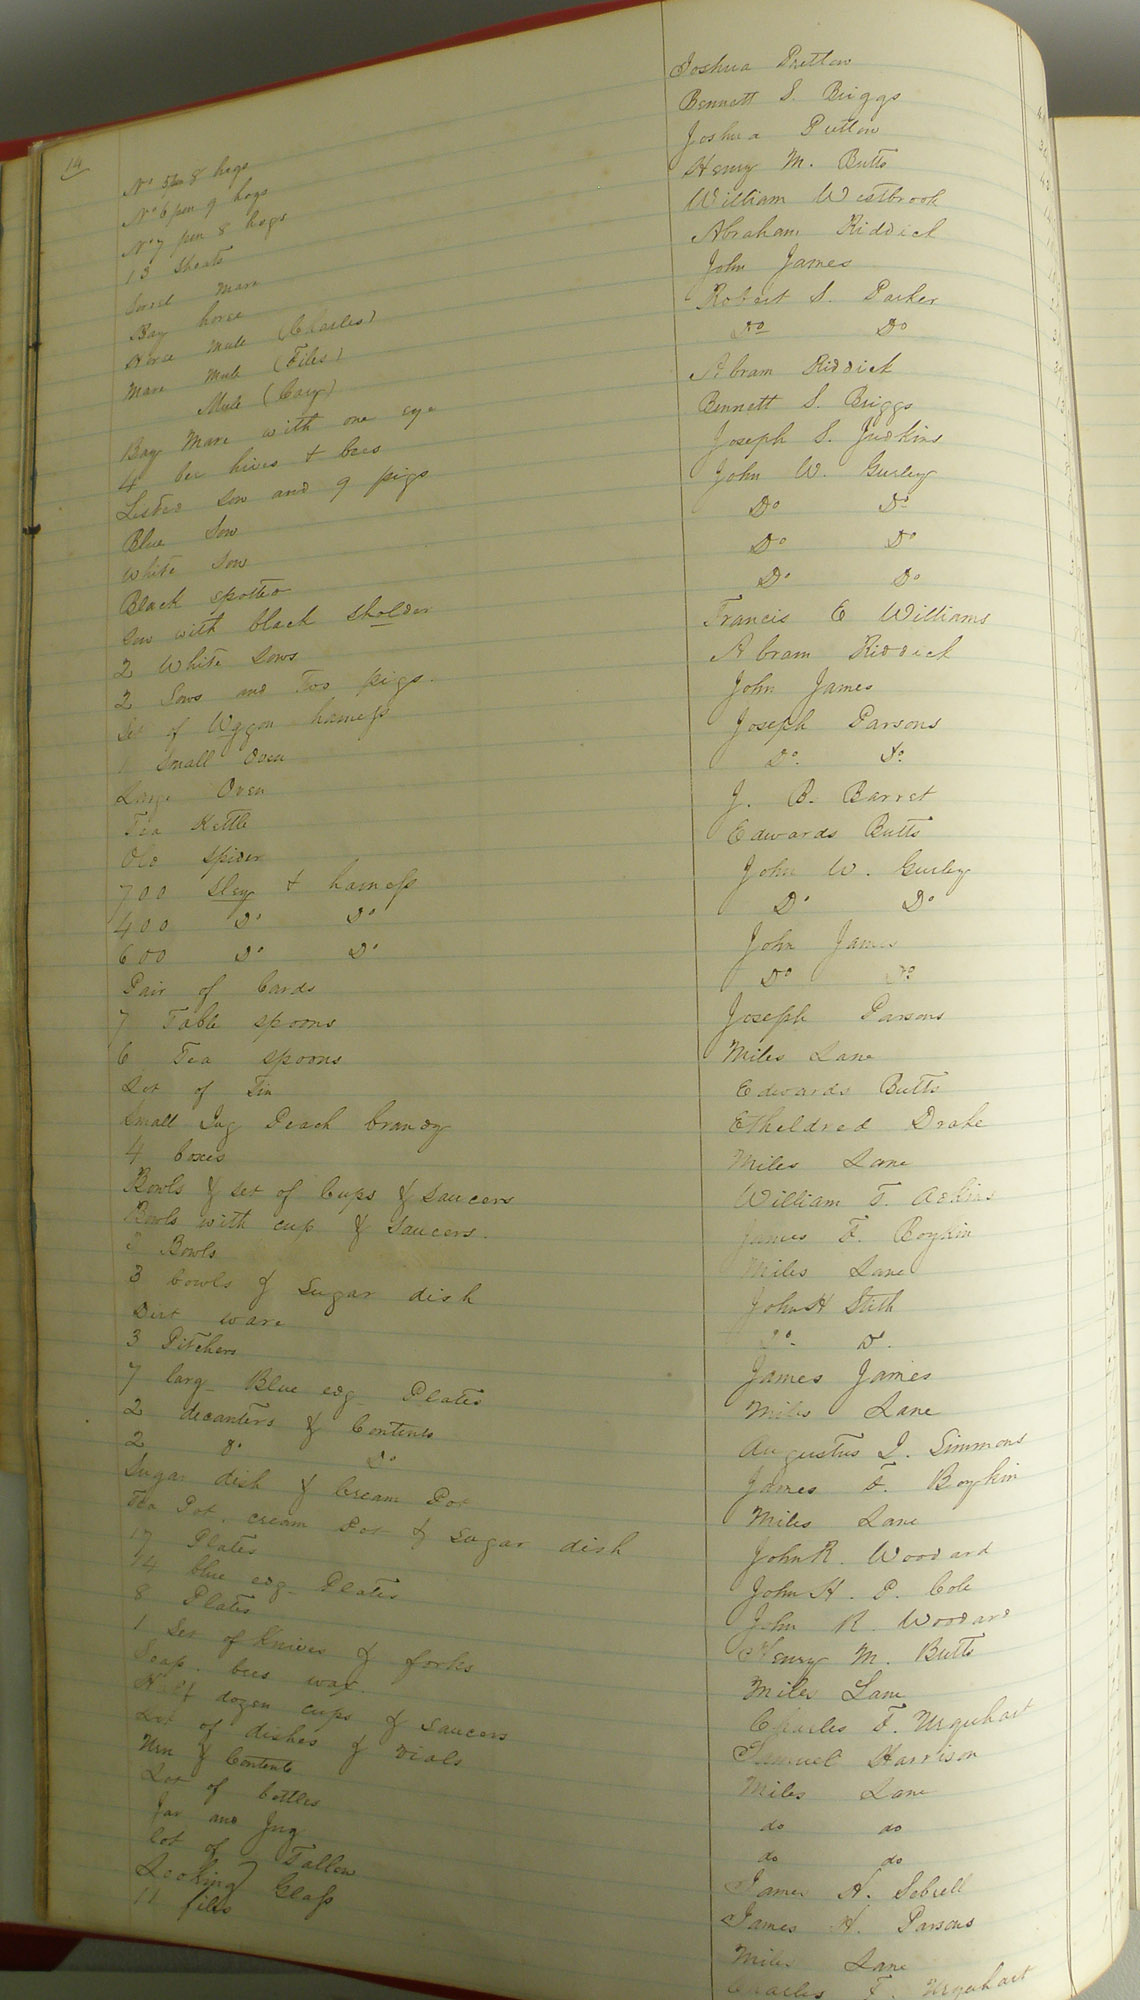 14
No 5 8 hogs Joshua Pretlow
No 6 pen 9 hogs Bennett S. Briggs
No 7 pen 8 hogs Joshua Pretlow
13 Shoats Henry M. Butts
Sorrel mare William Westbrook
Bay horse Abraham Riddick
Horse mule (Charles) John James
Mare mule (Files) Robert S. Parker
Mule (Cary) Do Do
Bay Mare with one eye Abram Riddick
4 bee hives & bees Bennett S. Briggs
Listed Sow and 9 pigs Joseph S. Judkins
Blue Sow John W. Gurley
White Sow Do Do
Black spotted Do Do
Sow with black sholder Do Do
2 White Sows Francis E Williams
2 Sows and Two pigs. Abram Riddick
Set of Waggon harness John James
1 Small Oven Joseph Parsons
Large Oven Do. Do.
Tea Kettle J. B. Barret
Old spider Edwards Butts
700 Sley & harness John W. Gurley
400 Do Do Do Do
600 Do Do John James
Pair of Cards Do Do
7 Table spoons Joseph Parsons
6 Tea spoons Miles Lane
Lot of Tin Edwards Butts
Small Jug Peach brandy Etheldred Drake
4 boxes Miles Lane
Bowls & set of Cups & Saucers William T. Adkins
Bowls with cup & Saucers. James F. Boykin
3 Bowls Miles Lane
3 bowls & Sugar dish John H Stith
Dirt ware Do. Do.
3 Pitchers James James
7 larg Blue edg Plates Miles Lane
2 decanters & Contents Augustus I. Simmons
2 do Do James F. Boykin
Sugar dish & Cream Pot Miles Lane
Tea Pot, cream Pot & Sugar dish John R. Woodard
17 Plates John H. P. Cole
14 blue edg Plates John R. Woodard
8 Plates Henry M. Butts
1 Set of Knives & forks Miles Lane
Soap. bees wax. Charles F. Urquhart
Half dozen cups & Saucers Samuel Harrison
Lot of dishes & vials Miles Lane
Urn & Contents do do
Lot of bottles do do
Jar and Jug James H. Sebrell
lot of Tallow James H. Parsons
Looking Glass Miles Lane
11 files Charles F. Urquhart